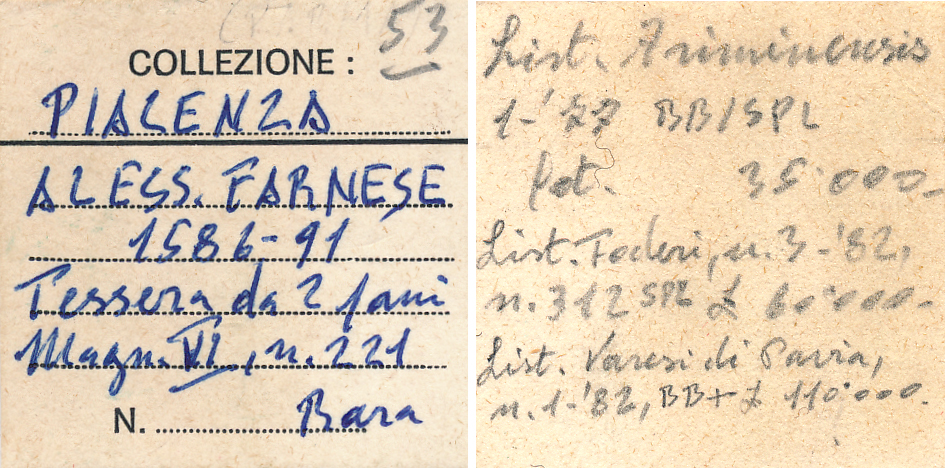 53
COLLEZIONE :
PIACENZA
ALESS. FARNESE
1586-91
Tessera da 2 pani
Magn. VI, n. 221
N. Rara
List. Ariminensis
1-'77 BB/SPL
fot. 35'000-
List. Foderi, n. 3-'82,
n. 312 SPL £ 60'000-
List. Varesi di Pavia,
n. 1-'82, BB+ £ 110'000.